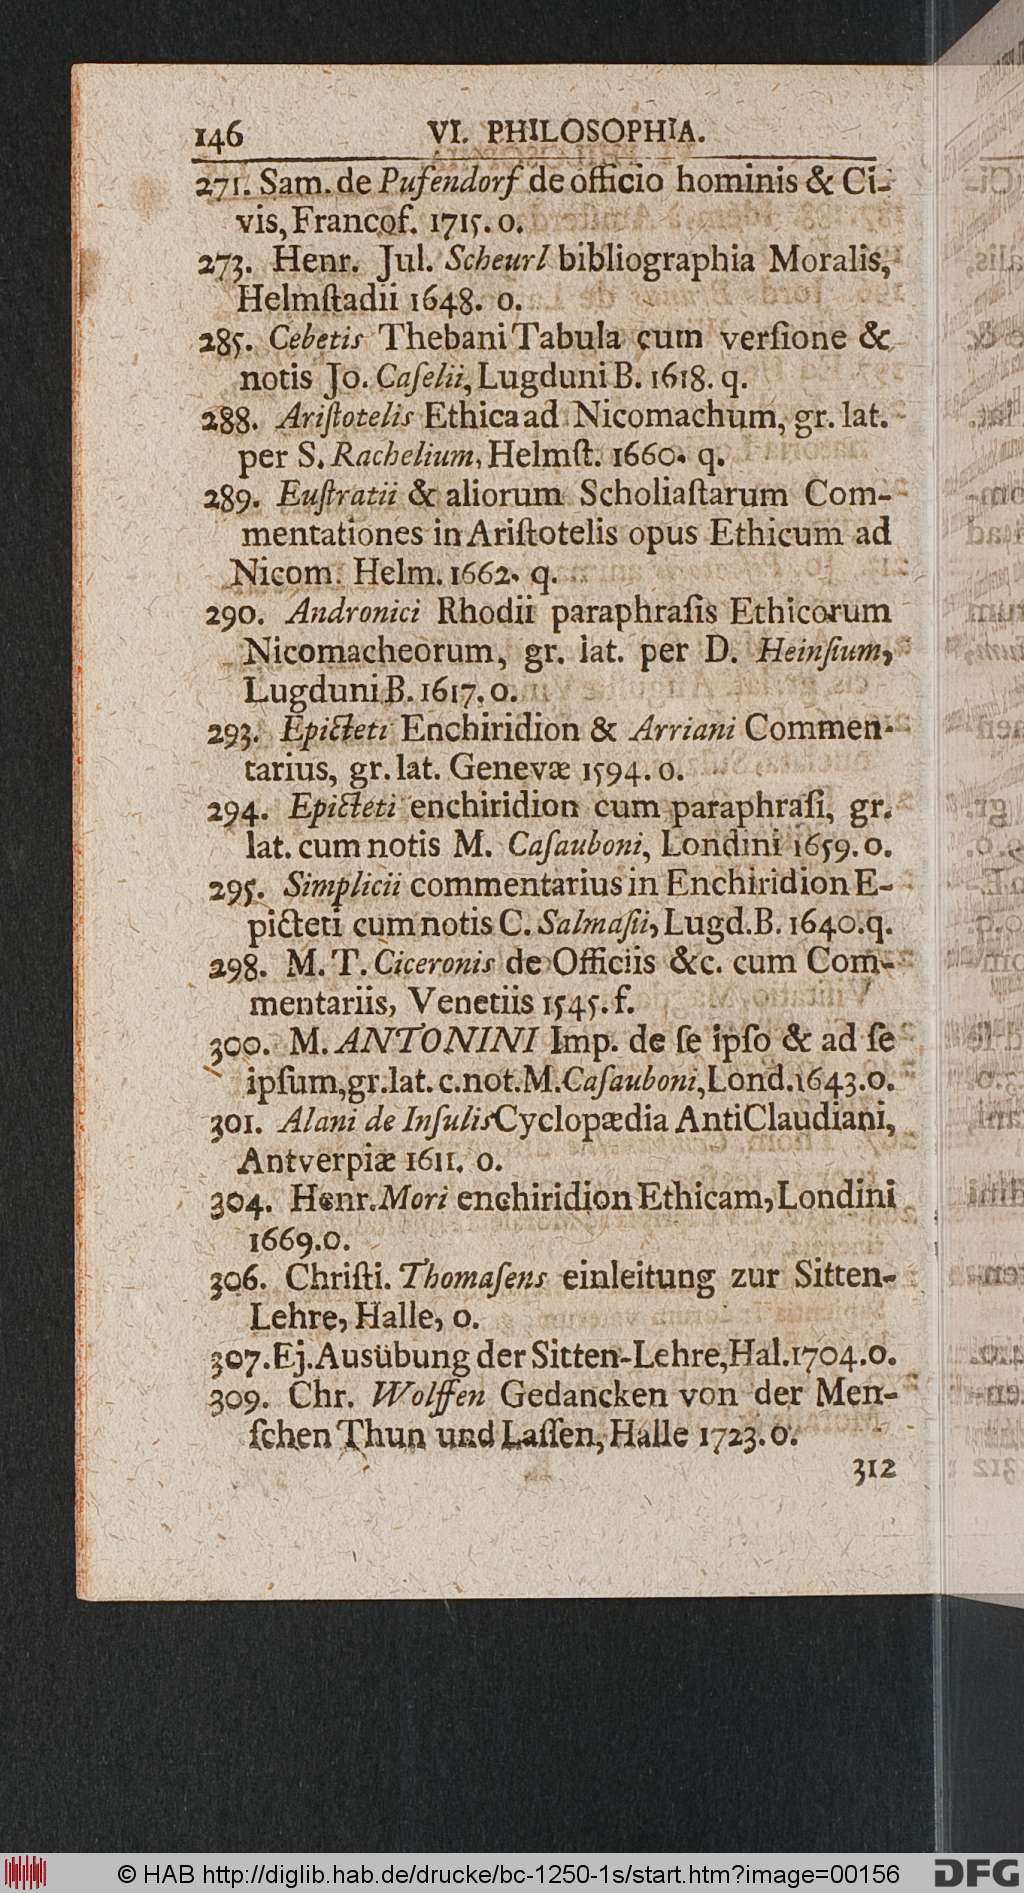 146 VI. PHILOSOPHIA.
271. Sam. de Pufendorf de officio hominis & Ci-
vis, Francof. 1715. o.
273. Henr. Jul. Scheurl bibliographia Moralis,
Helmſtadii 1648. o.
285. Cebetis Thebani Tabula cum verſione &
notis Jo. Caſelii, Lugduni B. 1618. q.
288. Ariſtotelis Ethica ad Nicomachum, gr. lat.
per S. Rachelium, Helmſt. 1660. q.
289. Euſtratii & aliorum Scholiaſtarum Com-
mentationes in Ariſtotelis opus Ethicum ad
Nicom. Helm. 1662. q.
290. Andronici Rhodii paraphraſis Ethicorum
Nicomacheorum, gr. lat. per D. Heinſium,
Lugduni B. 1617. o.
293. Epicteti Enchiridion & Arriani Commen-
tarius, gr. lat. Genevæ 1594. o.
294. Epicteti enchiridion cum paraphraſi, gr.
lat. cum notis M. Caſauboni, Londini 1659. o.
295. Simplicii commentarius in Enchiridion E-
picteti cum notis C. Salmaſii, Lugd. B. 1640. q.
298. M. T. Ciceronis de Officiis &c. cum Com-
mentariis, Venetiis 1545. f.
300. M. ANTONINI Imp. de ſe ipſo & ad ſe
ipſum, gr. lat. c. not. M. Caſauboni, Lond. 1643. o.
301. Alani de Inſulis Cyclopædia AntiClaudiani,
Antverpiæ 1611. o.
304. Henr. Mori enchiridion Ethicam, Londini
1669. o.
306. Chriſti. Thomaſens einleitung zur Sitten-
Lehre, Halle, o.
307. Ej. Ausübung der Sitten-Lehre, Hal. 1704. o.
309. Chr. Wolffen Gedancken von der Men-
ſchen Thun und Laſſen, Halle 1723. o.
312
© HAB http://diglib.hab.de/drucke/bc-1250-1s/start.htm?image=00156
DFG